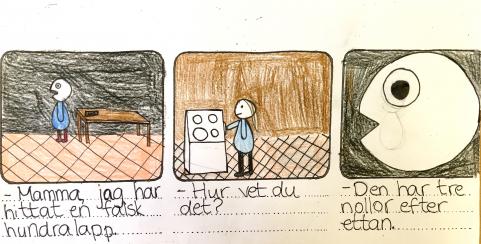 - Mamma, jag har
hittat en falsk
hundralapp.
- Hur vet du
det?
- Den har tre
nollor efter
ettan.